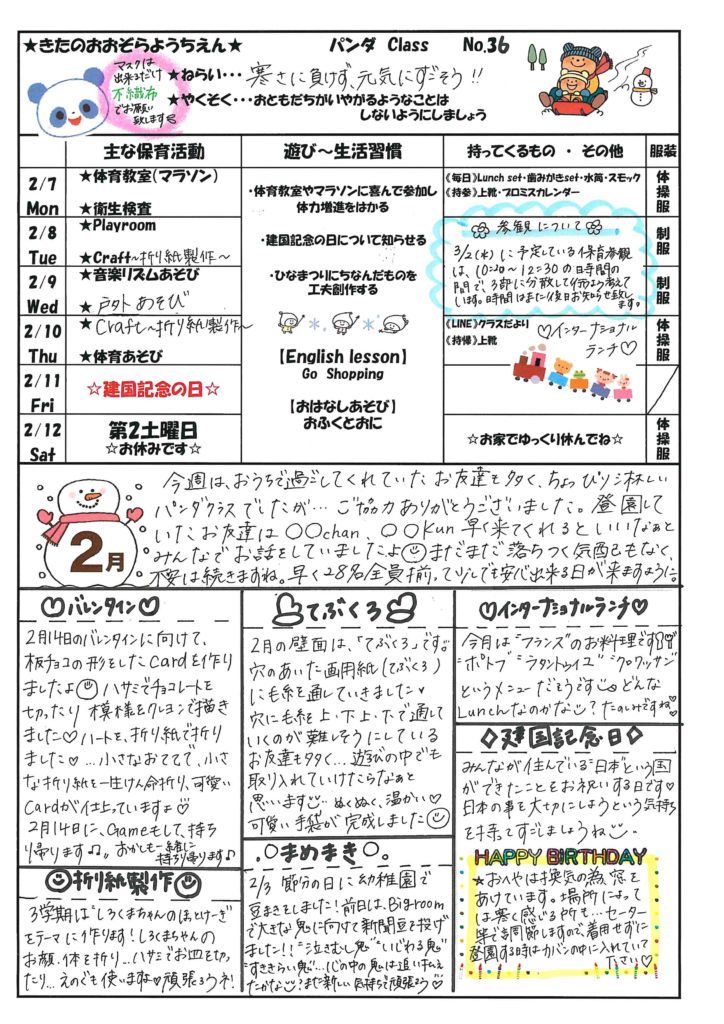 ★きたのおおぞらようちえん★ パンダ Class No.36
マスクは
出来るだけ
不織布
でお願い
致します
★ねらい・・・寒さに負けず、元気にすごそう!!
★やくそく・・・おともだちがいやがるようなことは
しないようにしましょう
主な保育活動 遊び～生活習慣 持ってくるもの ・ その他 服装
2/7
Mon
★体育教室(マラソン)
★衛生検査
2/8
Tue
★Playroom
★Craft～折り紙製作～
2/9
Wed
★音楽リズムあそび
★戸外あそび
2/10
Thu
★Craft～折り紙製作～
★体育あそび
2/11
Fri
☆建国記念の日☆
2/12
Sat
第2土曜日
☆お休みです☆
・体育教室やマラソンに喜んで参加し
体力増進をはかる
・建国記念の日について知らせる
・ひなまつりにちなんだものを
工夫創作する
【English lesson】
Go Shopping
【おはなしあそび】
おふくとおに
《毎日》Lunch set・歯みがきset・水筒・スモック
《持参》上靴・プロミスカレンダー
参観について
3/2(水)に予定している保育参観
は、10:20～12:30の日時間の
間で、3部に分散して行おうと考えて
います。時間はまた後日お知らせ致し
ます。
《LINE》クラスだより
《持帰》上靴
♡インターナショナル
ランチ♡
☆お家でゆっくり休んでね☆
体操服
制服
制服
体操服
体操服
2月
今週は、おうちで過ごしてくれていたお友達も多く、ちょっぴり淋しい
パンダクラスでしたが… ご協力ありがとうございました。登園して
いたお友達は〇〇chan、〇〇Kun早く来てくれるといいなぁと
みんなでお話をしていましたよ☺まだまだ落ちつく気配もなく、
不安は続きますね。早く28名全員揃って少しでも安心出来る日が来ますように。
♡バレンタイン♡
2月14日のバレンタインに向けて、
板チョコの形をしたCardを作り
ましたよ☺ハサミでチョコレートを
切ったり模様をクレヨンで描き
ました♡ハートを、折り紙で折り
ました♡…小さなおててで、小さ
な折り紙を一生けん命折り、可愛い
Cardが仕上っていますよ♡
2月14日に、Gameもして、持ち
帰ります♪。おかしも一緒に
持ち帰ります♪
☺折り紙製作☺
3学期は"しろくまちゃんのほっとけーき"
をテーマに作ります!しろくまちゃんの
お顔、体を折り…ハサミでお皿を切っ
たり…えのぐも使いますよ♡頑張ろうネ!
てぶくろ
2月の壁面は、「てぶくろ」です。
穴のあいた画用紙(てぶくろ)
に毛糸を通していきました♡
穴に毛糸を上・下上・下で通して
いくのが難しそうにしている
お友達も多く…遊びの中でも
取り入れていけたらなぁと
思います☺ ぬくぬく、温かい♡
可愛い手袋が完成しました☺
.○まめまき○.
2/3 節分の日に幼稚園で
豆まきをしました!前日は、Bigroom
で大きな鬼に向けて新聞豆を投げ
ました!!"泣きむし鬼""いじわる鬼"
"すききらい鬼"…心の中の鬼は追い払え
たかな☺?また新しい気持ちで頑張ろう♡
♡インターナショナルランチ♡
今月は"フランス"のお料理です♡
"ポトフ""ラタトゥイユ""クロワッサン"
というメニューだそうです☺どんな
Lunchなのかな☺?たのしみですね♡
◇建国記念日◇
みんなが住んでいる"日本"という国
ができたことをお祝いする日です♡
日本の事を大切にしようという気持ち
を持ってすごしましょうね☺。
HAPPY BiRTHDAY
★おへやは換気の為、窓を
あけています。場所によって
は寒く感じる所も…セーター
等で調節しますので、着用せずに
登園する時はカバンの中に入れていて
下さい♡